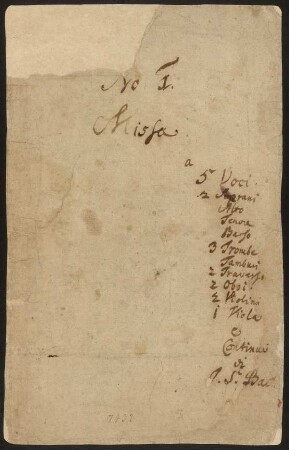 No I.
Missa
a
5 Voci.
2 Soprani
Alto
Tenore
Basso
3 Trombe
Tamburi
2 Traversi
2 Oboi
2 Violini
1 Viola
e
Continuo
di
J. S. Bac